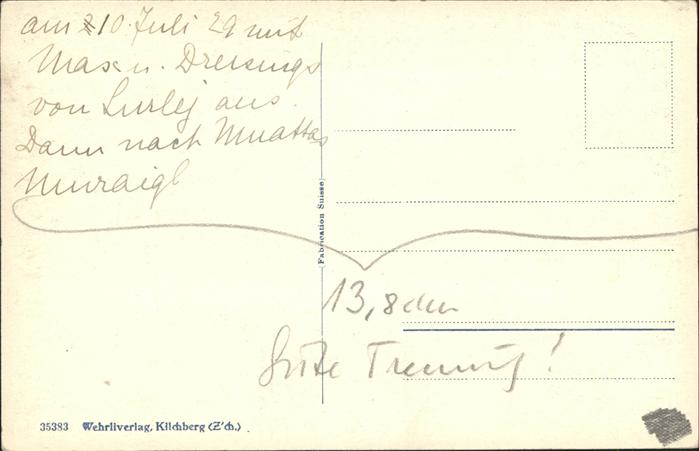 am 10. Juli 29 mit
Max u. Dreisings
von Surlej aus.
Dann nach Muattas
Muraigl
(Fabrication Suisse)
13,8 cm
Gute Trennung!
35383 Wehrliverlag, Kilchberg (Z'ch.)